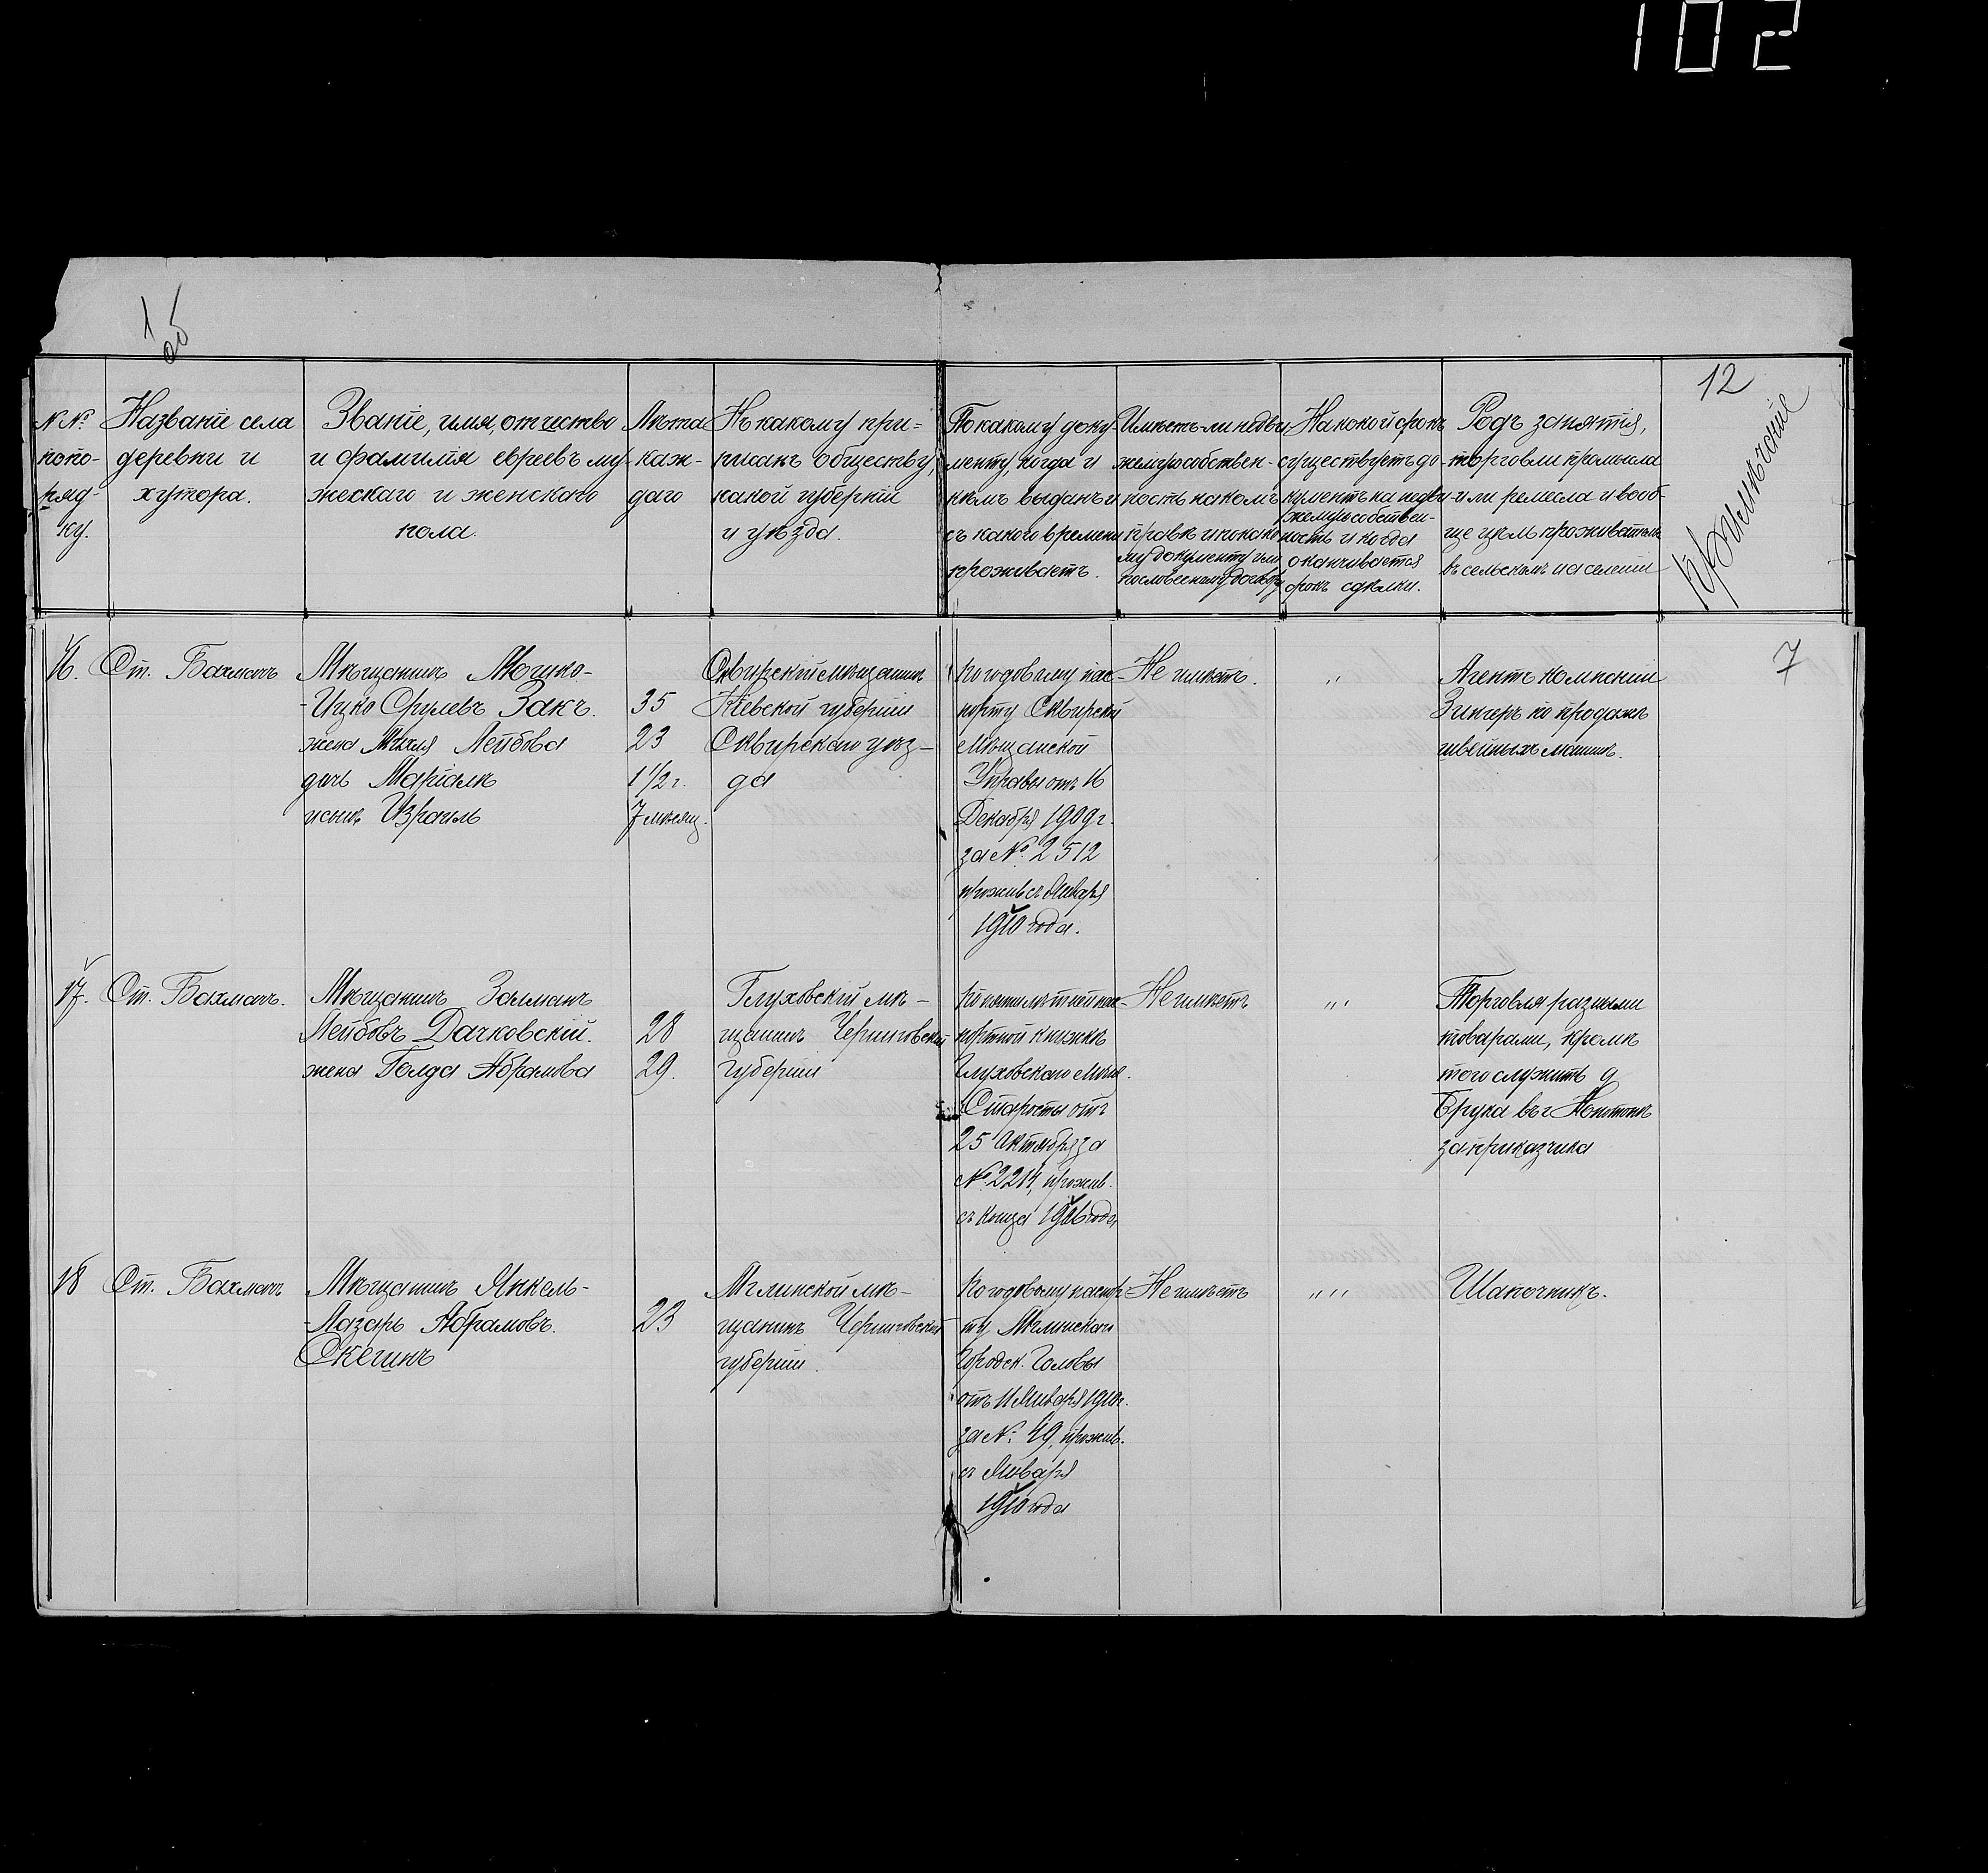 102
1об
12
№№
попо-
ряд-
ку.
Названіе села
деревни и
хутора.
Званіе, имя, отчество
и фамилія евреевъ му-
жескаго и женскаго
пола.
Лѣта
каж-
даго
Къ какому при-
писанъ обществу,
какой губерніи
и уѣзда.
По какому доку-
менту, когда и
кѣмъ выданъ и
съ какого времени
проживаетъ.
Имѣетъ-ли недви-
жимую собствен-
ность на какомъ
правѣ и по како-
му документу или
по словесному договору
На какой срокъ
существуетъ до-
кументъ на недви-
жимую собствен-
ность и когда
оканчивается
срокъ сдѣлки.
Родъ занятія,
торговли промысла
или ремесла и вооб-
ще чѣмъ проживаетъ
въ сельскомъ населеніи
Примѣчаніе
7
16.
Ст. Бахмачъ
Мѣщанинъ Мошко-
-Ицко Срулевъ Закъ.
жена Лейбова
дочь Маріамъ
и сынъ Израиль
35
23
1 1/2 г.
7 мѣсяц.
Сквирскій мѣщанинъ
Кіевской губерніи
Сквирскаго уѣз-
да
По годовому пас-
порту Сквирской
Мѣщанской
Управы отъ 16
Декабря 1909 г.
за № 2512
прожив. съ Января
1910 года.
Не имѣетъ.
,,
Агентъ компаніи
Зингеръ по продажѣ
швейныхъ машинъ.
17.
Ст. Бахмачъ.
Мѣщанинъ Залманъ
Лейбовъ Дачковскій.
жена Голда Абрамова
28
29.
Глуховскій мѣ-
щанинъ Черниговской
губерніи
По пятилѣтней пас-
портной книжкѣ
Глуховскаго Мѣщ.
Старосты отъ
25 Октября за
№ 2214, прожив.
съ конца 1906 года
Не имѣетъ
,,,
Торговля разными
товарами, кромѣ
того служитъ у
Брука въ г. Конотопѣ
за приказчика
18
Ст. Бахмачъ
Мѣщанинъ Янкель-
-Лазарь Абрамовъ.
Скегинъ
23
Мглинской мѣ-
щанинъ Черниговской
губерніи.
По годовому паспор-
ту Мглинскаго
Городск. Головы
отъ 11 Января 1910 г.
за № 49, прожив.
съ Января
1910 года
Не имѣетъ
,,,,
Шапочникъ.